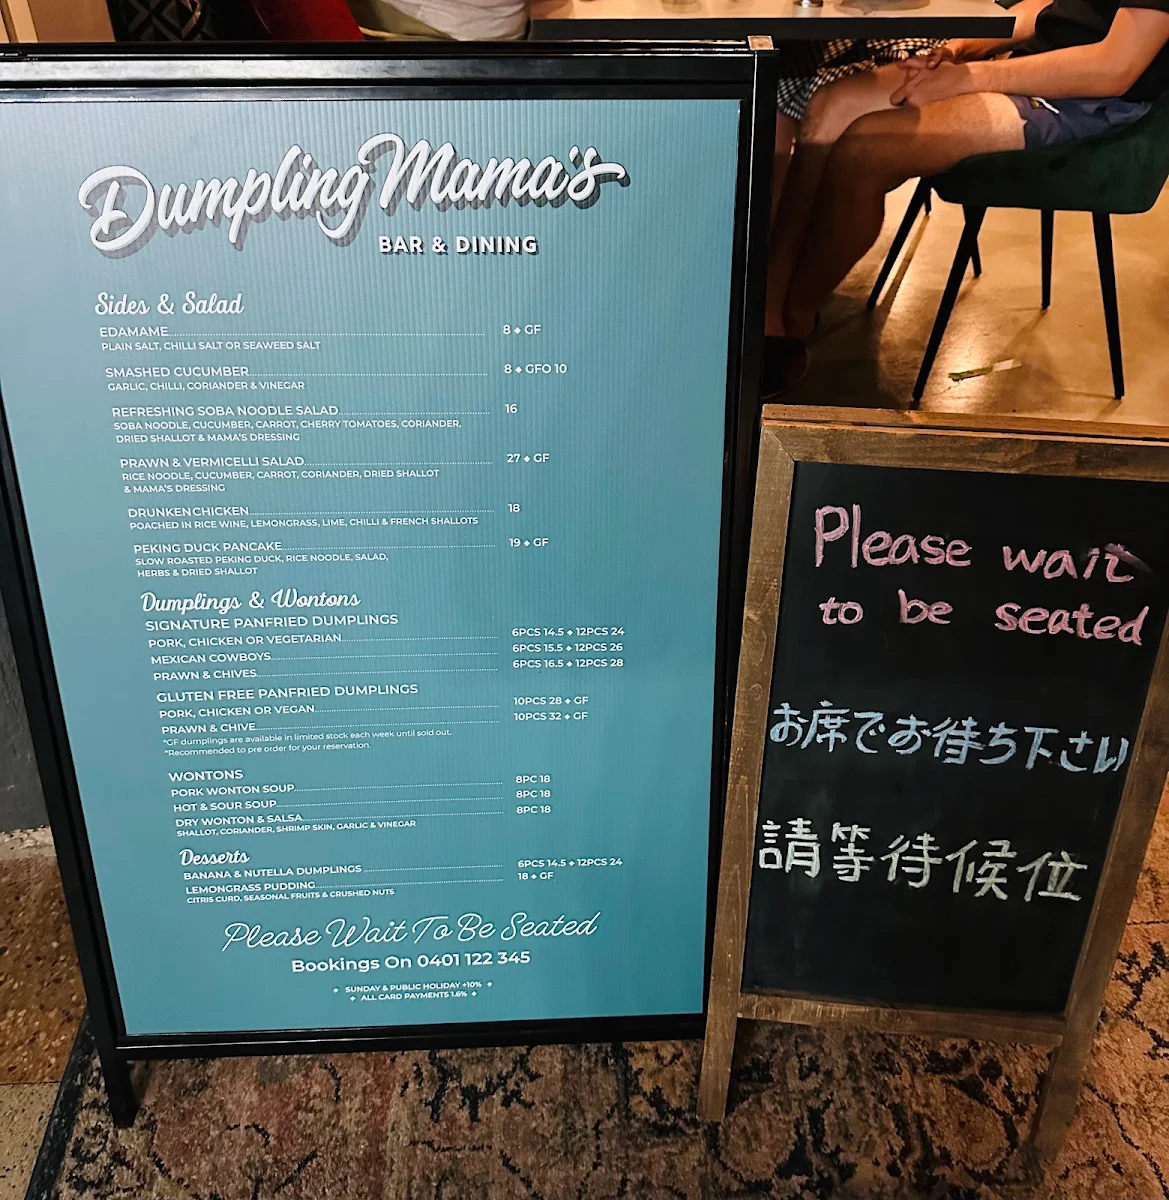 Dumpling Mama's
BAR & DINING
Sides & Salad
EDAMAME 8 ♦ GF
PLAIN SALT, CHILLI SALT OR SEAWEED SALT
SMASHED CUCUMBER 8 ♦ GFO 10
GARLIC, CHILLI, CORIANDER & VINEGAR
REFRESHING SOBA NOODLE SALAD 16
SOBA NOODLE, CUCUMBER, CARROT, CHERRY TOMATOES, CORIANDER,
DRIED SHALLOT & MAMA'S DRESSING
PRAWN & VERMICELLI SALAD 27 ♦ GF
RICE NOODLE, CUCUMBER, CARROT, CORIANDER, DRIED SHALLOT
& MAMA'S DRESSING
DRUNKEN CHICKEN 18
POACHED IN RICE WINE, LEMONGRASS, LIME, CHILLI & FRENCH SHALLOTS
PEKING DUCK PANCAKE 19 ♦ GF
SLOW ROASTED PEKING DUCK, RICE NOODLE, SALAD,
HERBS & DRIED SHALLOT
Dumplings & Wontons
SIGNATURE PANFRIED DUMPLINGS
PORK, CHICKEN OR VEGETARIAN 6PCS 14.5 ♦ 12PCS 24
MEXICAN COWBOYS 6PCS 15.5 ♦ 12PCS 26
PRAWN & CHIVES 6PCS 16.5 ♦ 12PCS 28
GLUTEN FREE PANFRIED DUMPLINGS
PORK, CHICKEN OR VEGAN 10PCS 28 ♦ GF
PRAWN & CHIVE 10PCS 32 ♦ GF
*GF dumplings are available in limited stock each week until sold out.
*Recommended to pre order for your reservation.
WONTONS
PORK WONTON SOUP 8PC 18
HOT & SOUR SOUP 8PC 18
DRY WONTON & SALSA 8PC 18
SHALLOT, CORIANDER, SHRIMP SKIN, GARLIC & VINEGAR
Desserts
BANANA & NUTELLA DUMPLINGS 6PCS 14.5 ♦ 12PCS 24
LEMONGRASS PUDDING 18 ♦ GF
CITRIS CURD, SEASONAL FRUITS & CRUSHED NUTS
Please Wait To Be Seated
Bookings On 0401 122 345
♦ SUNDAY & PUBLIC HOLIDAY +10% ♦
♦ ALL CARD PAYMENTS 1.6% ♦
Please wait
to be seated
お席でお待ち下さい
請等待候位